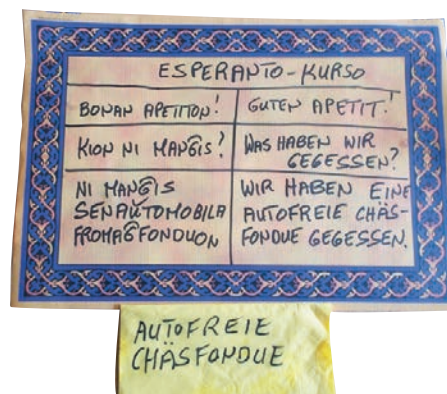 ESPERANTO-KURSO
BONAN APETITON!
GUTEN APETIT!
KION NI MANĜIS?
WAS HABEN WIR
GEGESSEN?
NI MANĜIS
SENAŬTOMOBILA
FROMAĜFONDUON
WIR HABEN EINE
AUTOFREIE CHÄS-
FONDUE GEGESSEN.
AUTOFREIE
CHÄSFONDUE